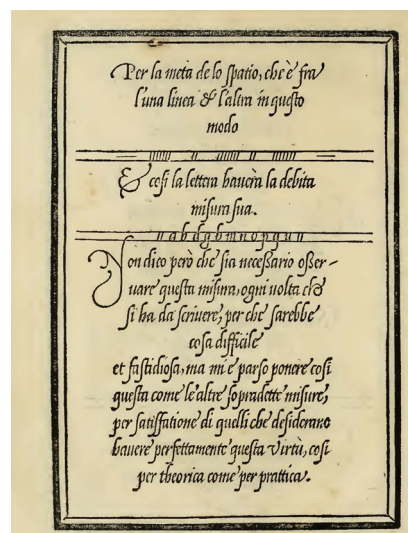 Per la metà de lo spatio, che è fra
l'una linea & l'altra in questo
modo
& così la lettera haverà la debita
misura sua.
a b d g h m n o p q u
Non dico però che sia necessario osser-
vare questa misura, ogni volta che
si ha da scrivere, per che sarebbe
cosa difficile
et fastidiosa, ma mi è parso ponere così
questa come le altre sopradette misure,
per satisfatione di quelli che desiderano
havere perfettamente questa virtù, così
per theorica come per prattica.